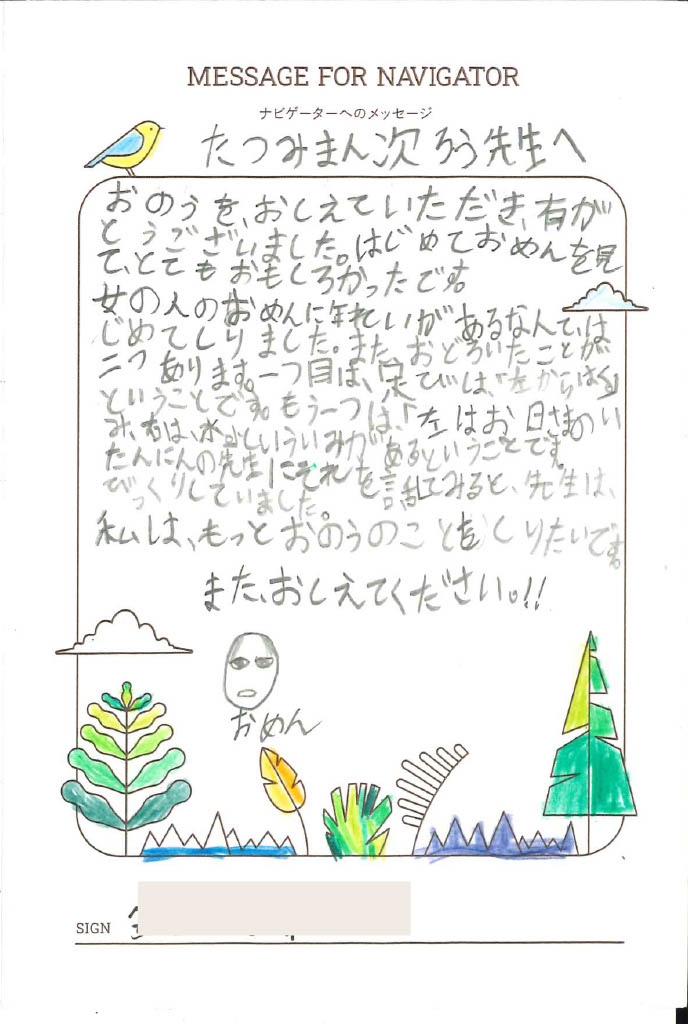 MESSAGE FOR NAVIGATOR
ナビゲーターへのメッセージ
たつみまん次ろう先生へ
おのうを、おしえていただき、有がとうございました。はじめておめんを見
て、とてもおもしろかったです。
女の人のおめんに年れいがあるなんて、は
じめてしりました。また、おどろいたことが
二つあります。一つ目は、足
たびは、「左からはく」
ということです。もう一つは、「左はお日さまのい
み、右は、水」といういみがあるということです。
たんにんの先生にそれを話してみると、先生は、
びっくりしていました。
私は、もっとおのうのことをしりたいです。
また、おしえてください。!!
おめん
SIGN